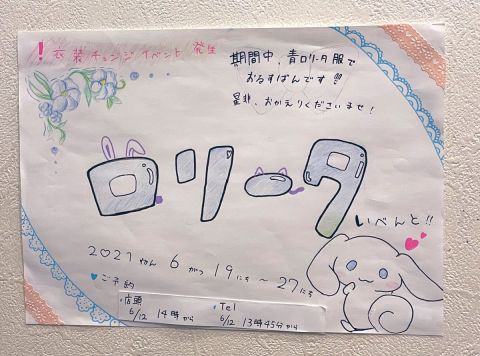 ！衣装チェンジイベント発生
期間中、青ロリータ服で
おるすばんです!!!
是非、おかえりくださいませ！
ロリータ
いべんと!!
2021ねん 6がつ 19にち～27にち
ご予約
店頭
6/12 14時から
Tel
6/12 13時45分から